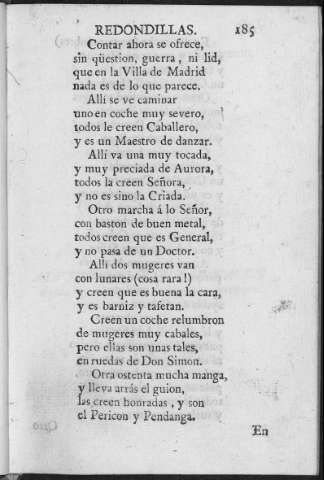 REDONDILLAS. 185
Contar ahora se ofrece,
sin qüestion, guerra, ni lid,
que en la Villa de Madrid
nada es de lo que parece.
Allí se ve caminar
uno en coche muy severo,
todos le creen Caballero,
y es un Maestro de danzar.
Allí va una muy tocada,
y muy preciada de Aurora,
todos la creen Señora,
y no es sino la Criada.
Otro marcha á lo Señor,
con baston de buen metal,
todos creen que es General,
y no pasa de un Doctor.
Alli dos mugeres van
con lunares (cosa rara!)
y creen que es buena la cara,
y es barniz y tafetan.
Creen un coche relumbron
de mugeres muy cabales,
pero ellas son unas tales,
en ruedas de Don Simon.
Otra ostenta mucha manga,
y lleva atrás el guion,
las creen honradas, y son
el Pericon y Pendanga.
En